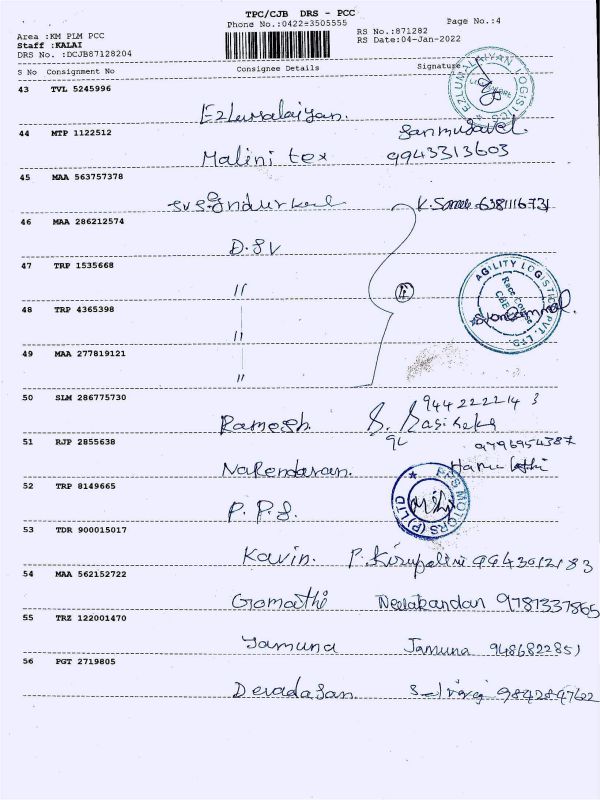 TPC/CJB DRS - PCC
Phone No.:0422-3505555
Page No.:4
Area :KM PLM PCC
RS No.:871282
Staff :KALAI
RS Date:04-Jan-2022
DRS No. :DCJB87128204
S No Consignment No Consignee Details Signature
43 TVL 5245996
Ezlumalaiyan.
EZLUMALAIYAN LOGISTICS
44 MTP 1122512
Malini tex
9943313603
45 MAA 563757378
46 MAA 286212574
D.SV
47 TRP 1535668
"
AGILITY LOGISTICS PVT. LTD.
Race Course
CBE
48 TRP 4365398
"
49 MAA 277819121
"
50 SLM 286775730
Ramesh.
51 RJP 2855638
Narendaran.
52 TRP 8149665
P.P.S.
PPS MOTORS (P) LTD
53 TDR 900015017
Kavin. 9943012183
54 MAA 562152722
Gomathi Neelakandan 9787337865
55 TRZ 122001470
Jamuna Jamuna 9486822851
56 PGT 2719805
Devadasan 9842847622